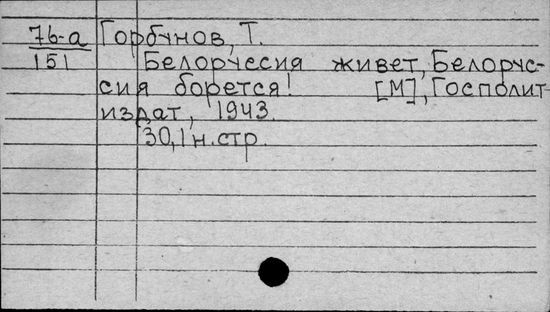 76-а Горбунов, Т.
151 Белоруссия живет, Белорус-
сия борется! [М], Госполит-
издат, 1943.
30,1 н.стр.